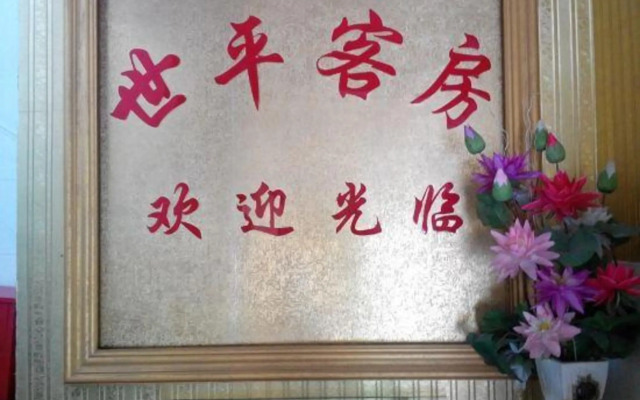 世平客房
欢迎光临